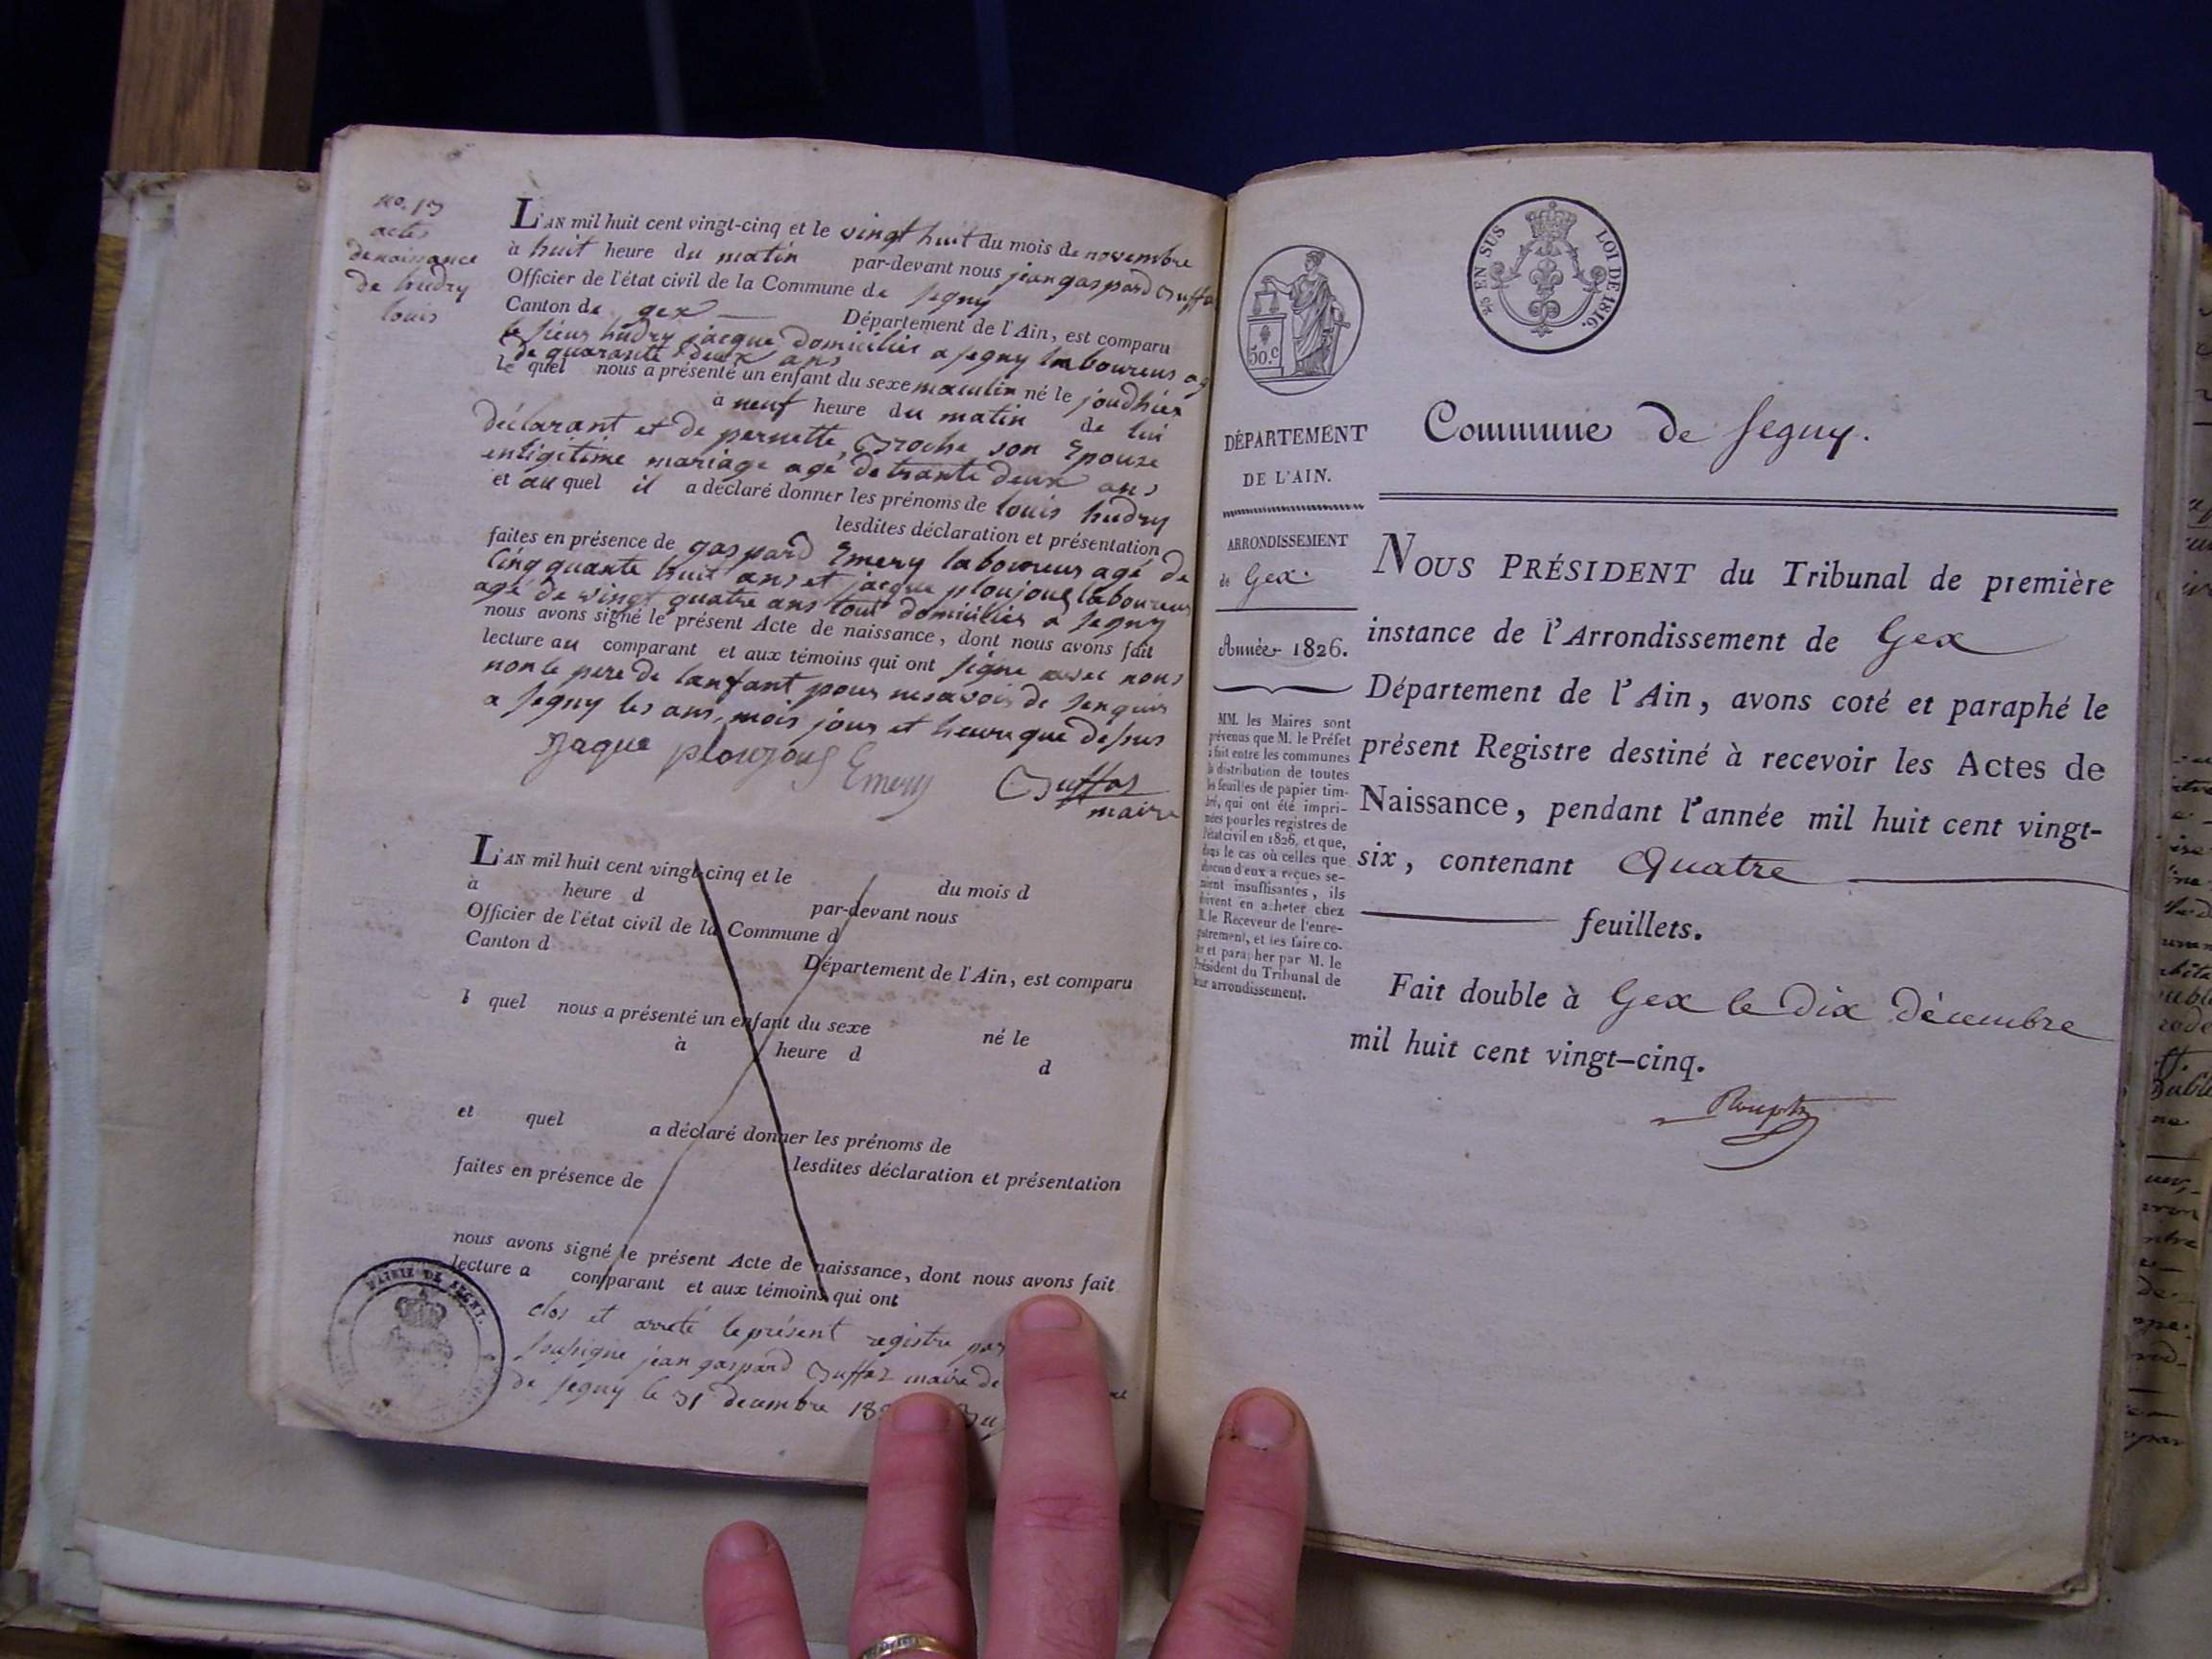 no. 13
actes
de naissance
de hudry
louis
L'AN mil huit cent vingt-cinq et le vingt huit du mois de novembre
à huit heure du matin par-devant nous jean gaspard
Officier de l'état civil de la Commune de segny
Canton de gex Département de l'Ain, est comparu
le sieur hudry jacque domicilier a segny laboureur ag
de quarante deux ans
le quel nous a présenté un enfant du sexe masculin né le joudhier
à neuf heure du matin de lui
déclarant et de pernette son Epouse
enligitime mariage agé de trante deux ans
et au quel il a déclaré donner les prénoms de louis hudry
lesdites déclaration et présentation
faites en présence de gaspard Emery laboureur agé de
Cinq quante huit ans et jacque ploujoug laboureur
agé de vingt quatre ans tout domicilier a segny
nous avons signé le présent Acte de naissance, dont nous avons fait
lecture au comparant et aux témoins qui ont signe avec nous
non le pere de lanfant pour nesavoir de
a segny les ans, mois jour et heure que desus
Jaque ploujoug Emery
maire
L'AN mil huit cent vingt-cinq et le du mois d
à heure d par-devant nous
Officier de l'état civil de la Commune d
Canton d Département de l'Ain, est comparu
l quel nous a présenté un enfant du sexe né le
à heure d d
et quel a déclaré donner les prénoms de
lesdites déclaration et présentation
faites en présence de
nous avons signé le présent Acte de naissance, dont nous avons fait
lecture a comparant et aux témoins qui ont
clos et arreté leprésent registre par
jean gaspard maire de
de segny le 31 decembre 18
MAIRIE DE SEGNI.
EN SUS LOI DE 1816.
50.c
DÉPARTEMENT
DE L'AIN.
ARRONDISSEMENT
de Gex.
Année 1826.
MM. les Maires sont
prévenus que M. le Préfet
a fait entre les communes
la distribution de toutes
les feuilles de papier tim-
bré, qui ont été impri-
mées pour les registres de
l'état civil en 1826, et que,
dans le cas où celles que
chacun d'eux a reçues se-
roient insuffisantes, ils
doivent en acheter chez
M. le Receveur de l'enre-
gistrement, et les faire co-
ter et parapher par M. le
Président du Tribunal de
leur arrondissement.
Commune de Segny.
NOUS PRÉSIDENT du Tribunal de première
instance de l'Arrondissement de Gex
Département de l'Ain, avons coté et paraphé le
présent Registre destiné à recevoir les Actes de
Naissance, pendant l'année mil huit cent vingt-
six, contenant Quatre
feuillets.
Fait double à Gex le dix décembre
mil huit cent vingt-cinq.